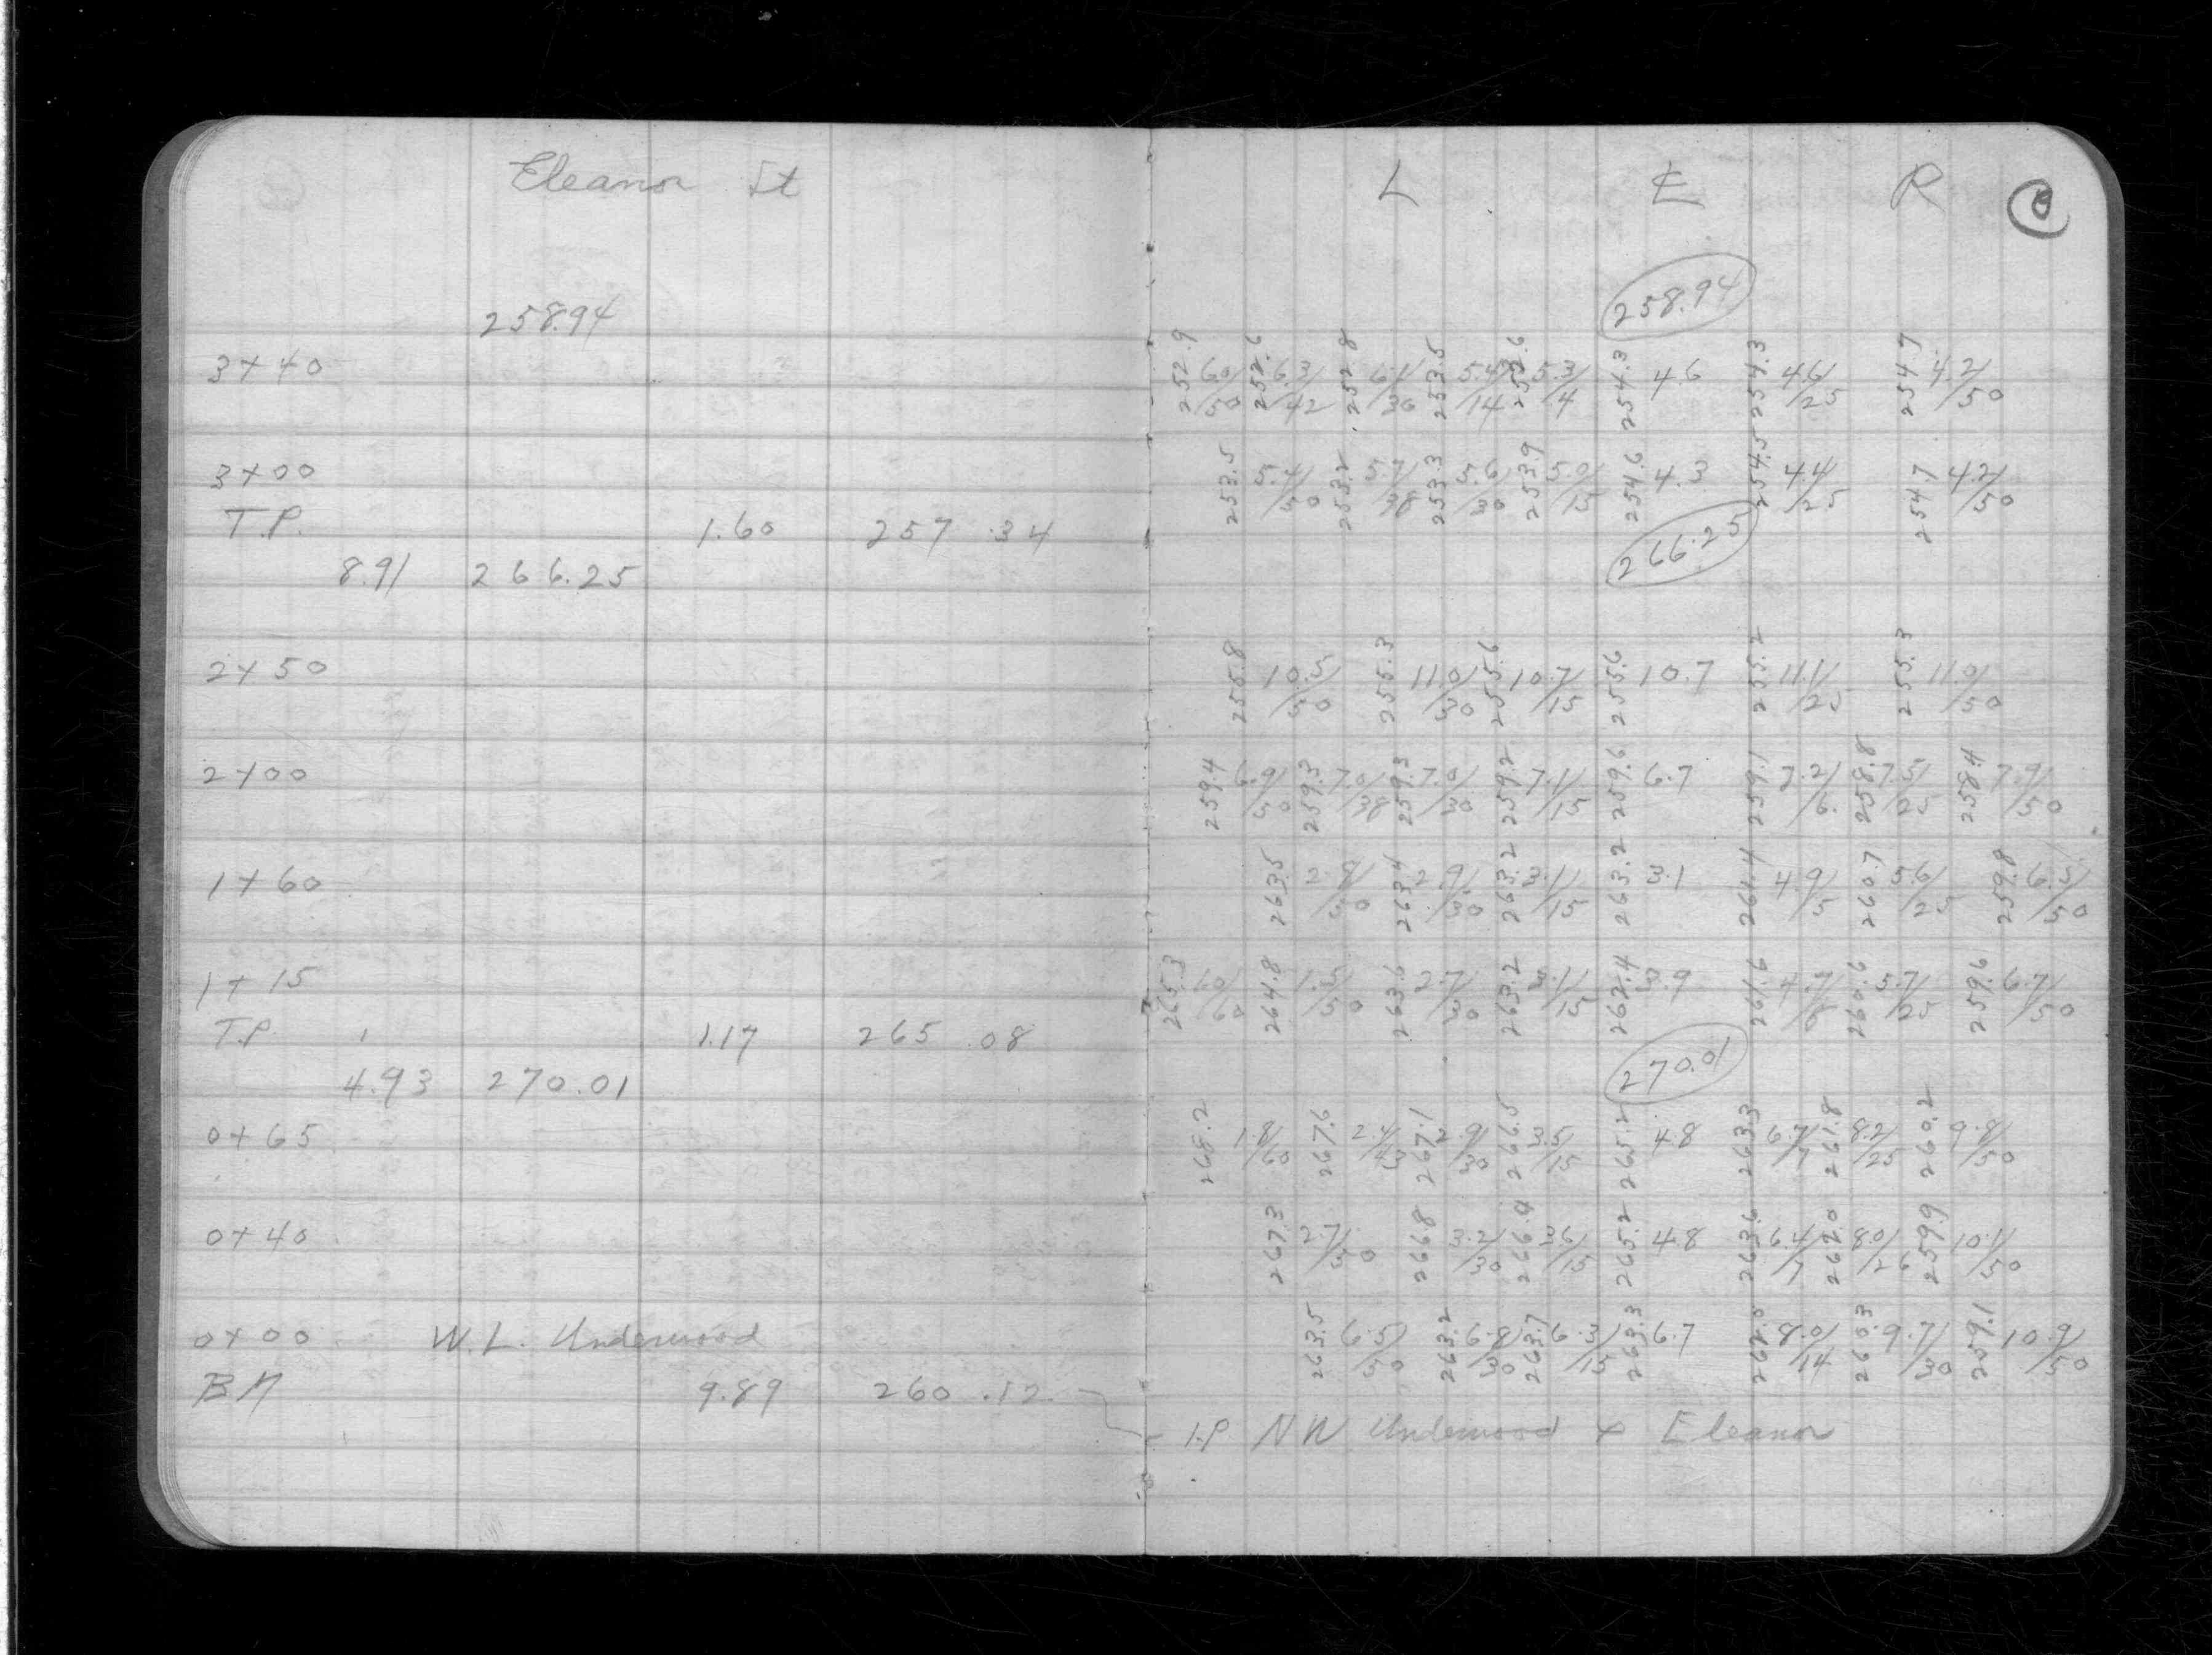 Eleanor St
258.94
3+40
3+00
T.P. 1.60 257 .34
8.91 266.25
2+50
2+00
1+60
1+15
T.P. 1.17 265 .08
4.93 270.01
0+65
0+40
0+00 W. L. Underwood
BM 9.89 260 .12
L ℄ R
258.94
252.9 6.0/50 252.6 6.3/42 252.8 6.1/30 253.5 5.4/14 253.6 5.3/4 254.3 4.6 254.3 4.6/25 254.7 4.2/50
253.5 5.4/50 253.2 5.7/38 253.3 5.6/30 253.9 5.0/15 254.6 4.3 254.5 4.4/25 254.7 4.2/50
266.25
255.8 10.5/50 255.3 11.0/30 255.6 10.7/15 255.6 10.7 255.2 11.1/25 255.3 11.0/50
259.4 6.9/50 259.3 7.0/38 259.3 7.0/30 259.2 7.1/15 259.6 6.7 259.1 7.2/6 258.8 7.5/25 258.4 7.9/50
263.5 2.9/50 263.4 2.9/30 263.2 3.1/15 263.2 3.1 261.4 4.9/5 260.7 5.6/25 259.8 6.5/50
265.3 1.0/60 264.8 1.5/50 263.6 2.7/30 263.2 3.1/15 262.4 3.9 261.6 4.7/6 260.6 5.7/25 259.6 6.7/50
270.01
268.2 1.8/60 267.6 2.4/43 267.1 2.9/30 266.5 3.5/15 265.2 4.8 263.3 6.7/7 261.8 8.2/25 260.2 9.8/50
267.3 2.7/50 266.8 3.2/30 266.4 3.6/15 265.2 4.8 263.6 6.4/7 262.0 8.0/26 259.9 10.1/50
263.5 6.5/50 263.2 6.8/30 263.7 6.3/15 263.3 6.7 262.0 8.0/14 260.3 9.7/30 259.1 10.9/50
I.P. NW Underwood & Eleanor